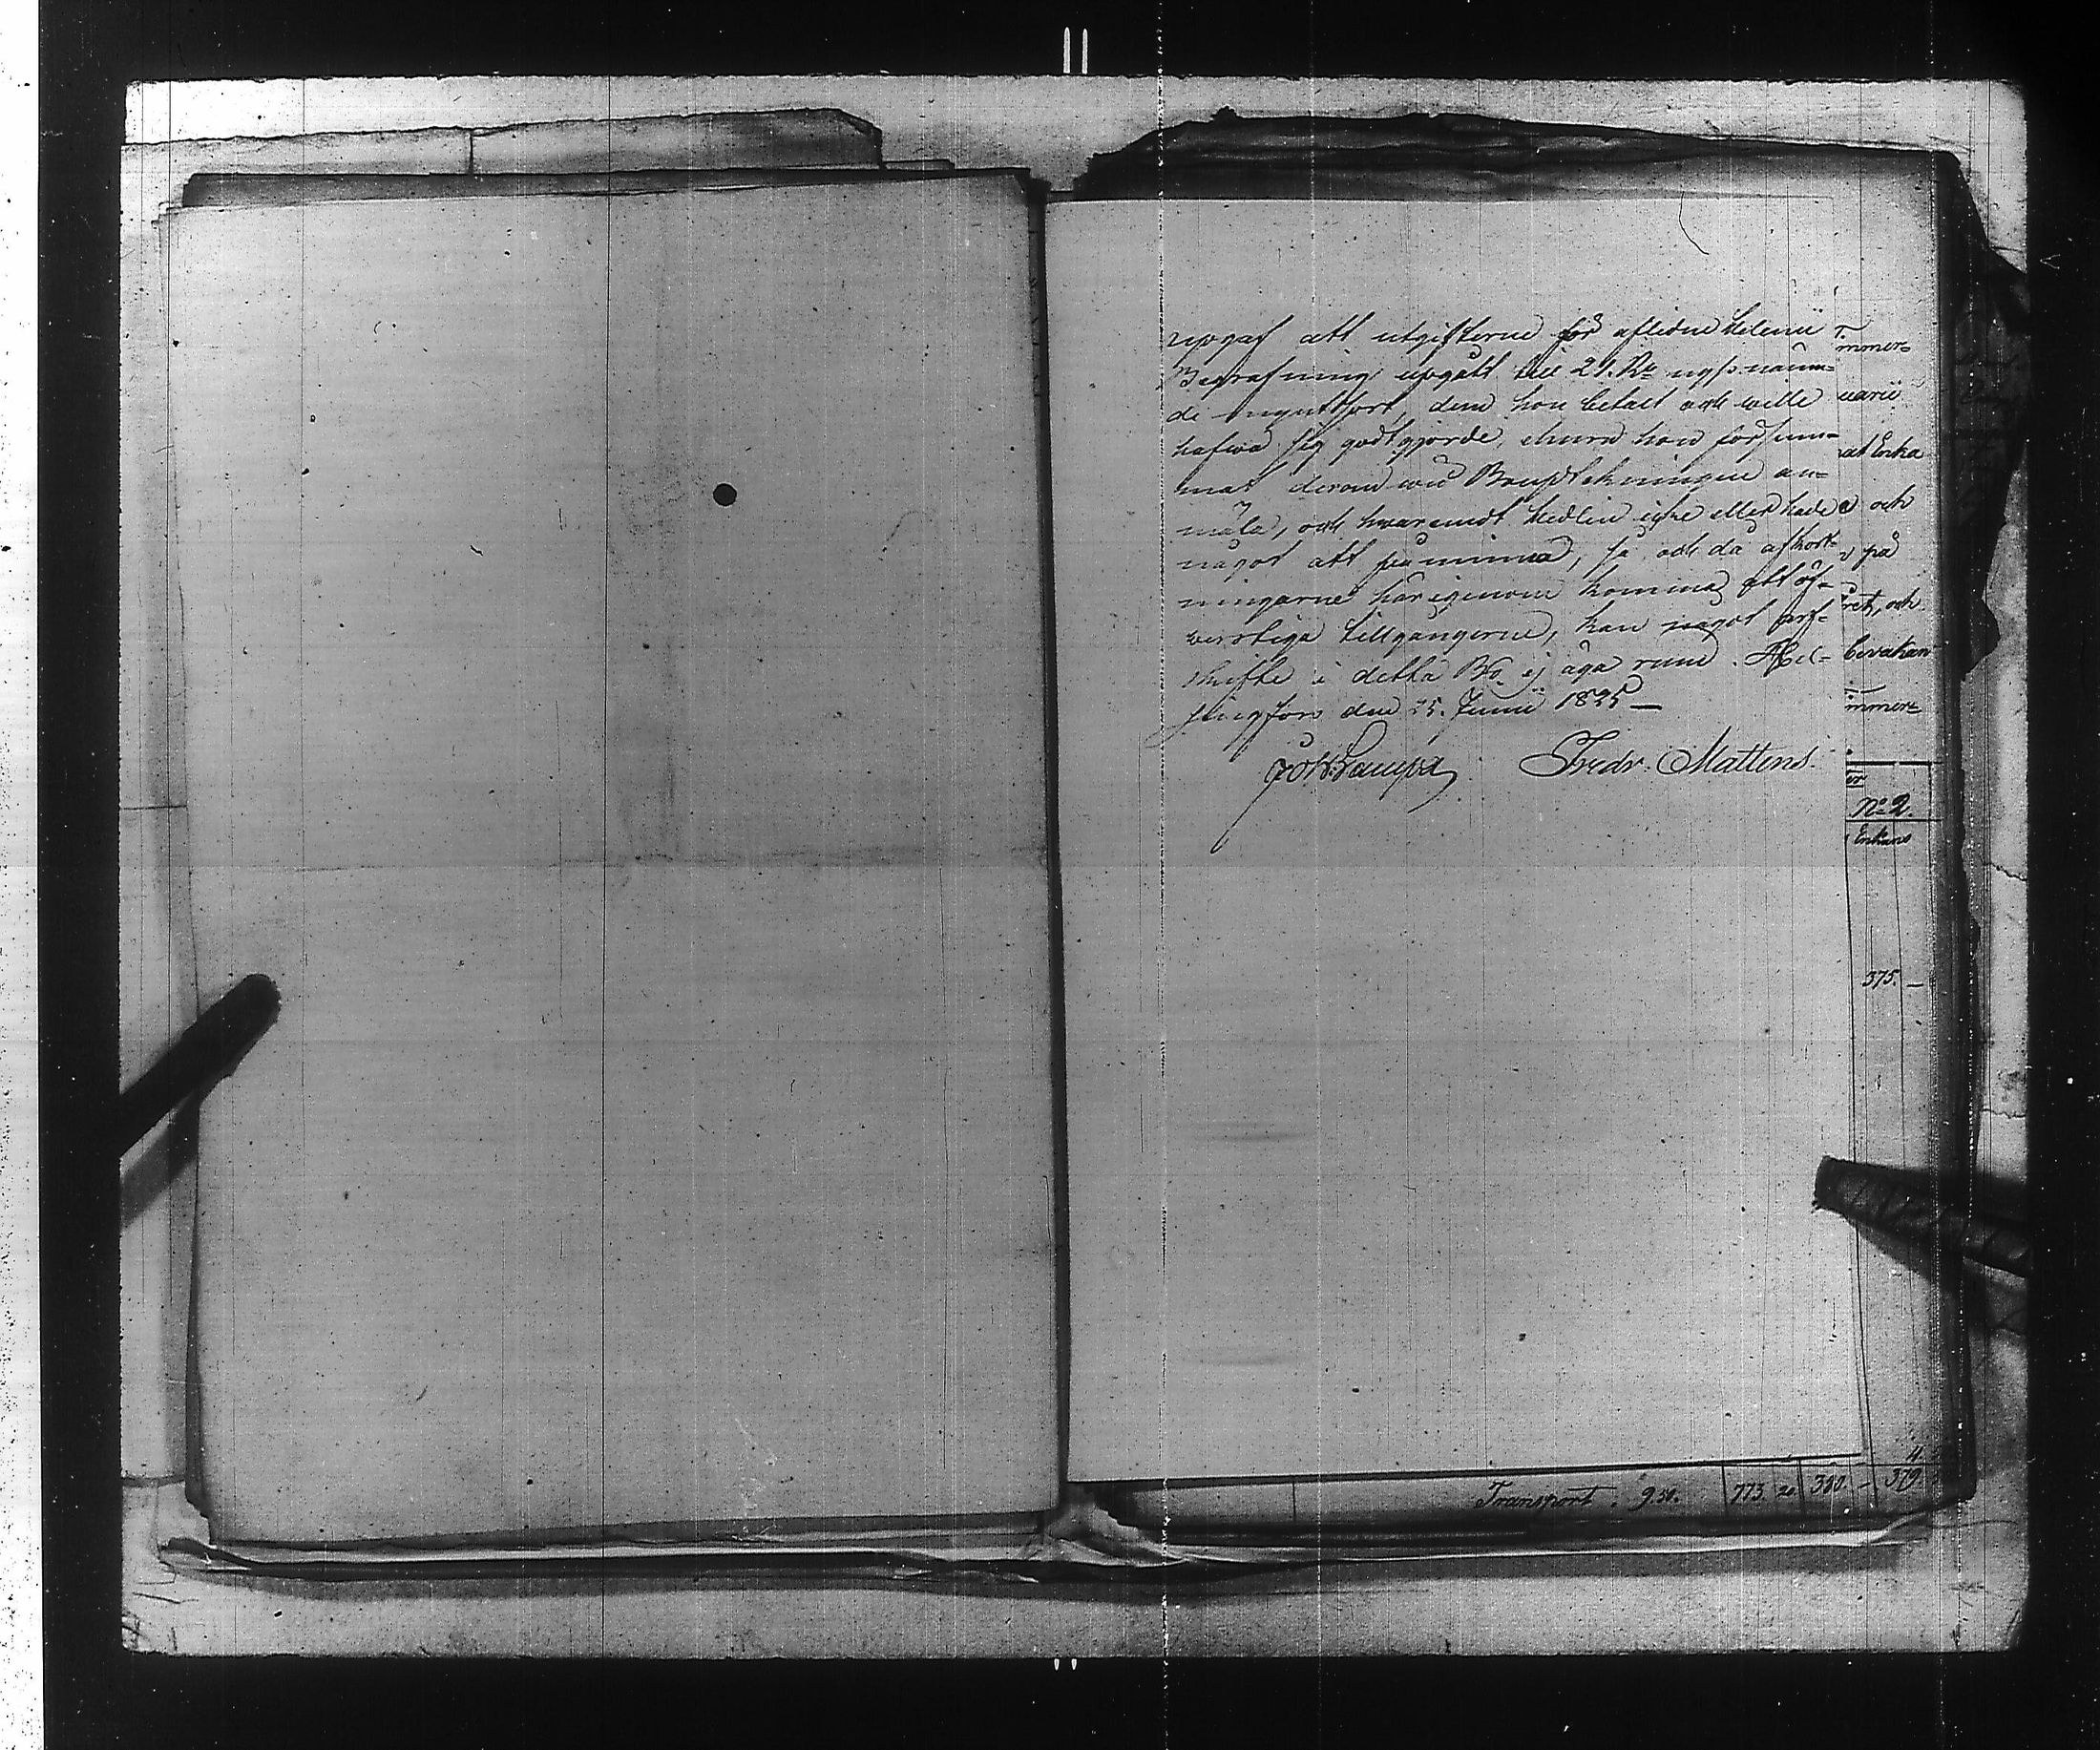 upgaf att utgifterne för aflidne Helenii
Begrafning upgått till 21. R. nyss nämn=
de myntsort, dem hon betalt och wille
hafwa sig godtgjorde, ehuru hon försum=
mat derom wid Bouptekningen an=
mäla, och hwaremot Hedlin icke eller hade
något att påminna, så och då afkort=
ningarne härigenom komma att öf=
werstiga tillgångerne, kan något arf=
skifte i detta Bo ej äga rum. Hel=
singfors den 25. Junii 1825 —
Fredr. Mattens
mmer=
uarii
och
på
och
bevakan
mmer=
No 2.
Enkans
375. —
4.
Transport. 9.50. 773. 20. 380. — 379.